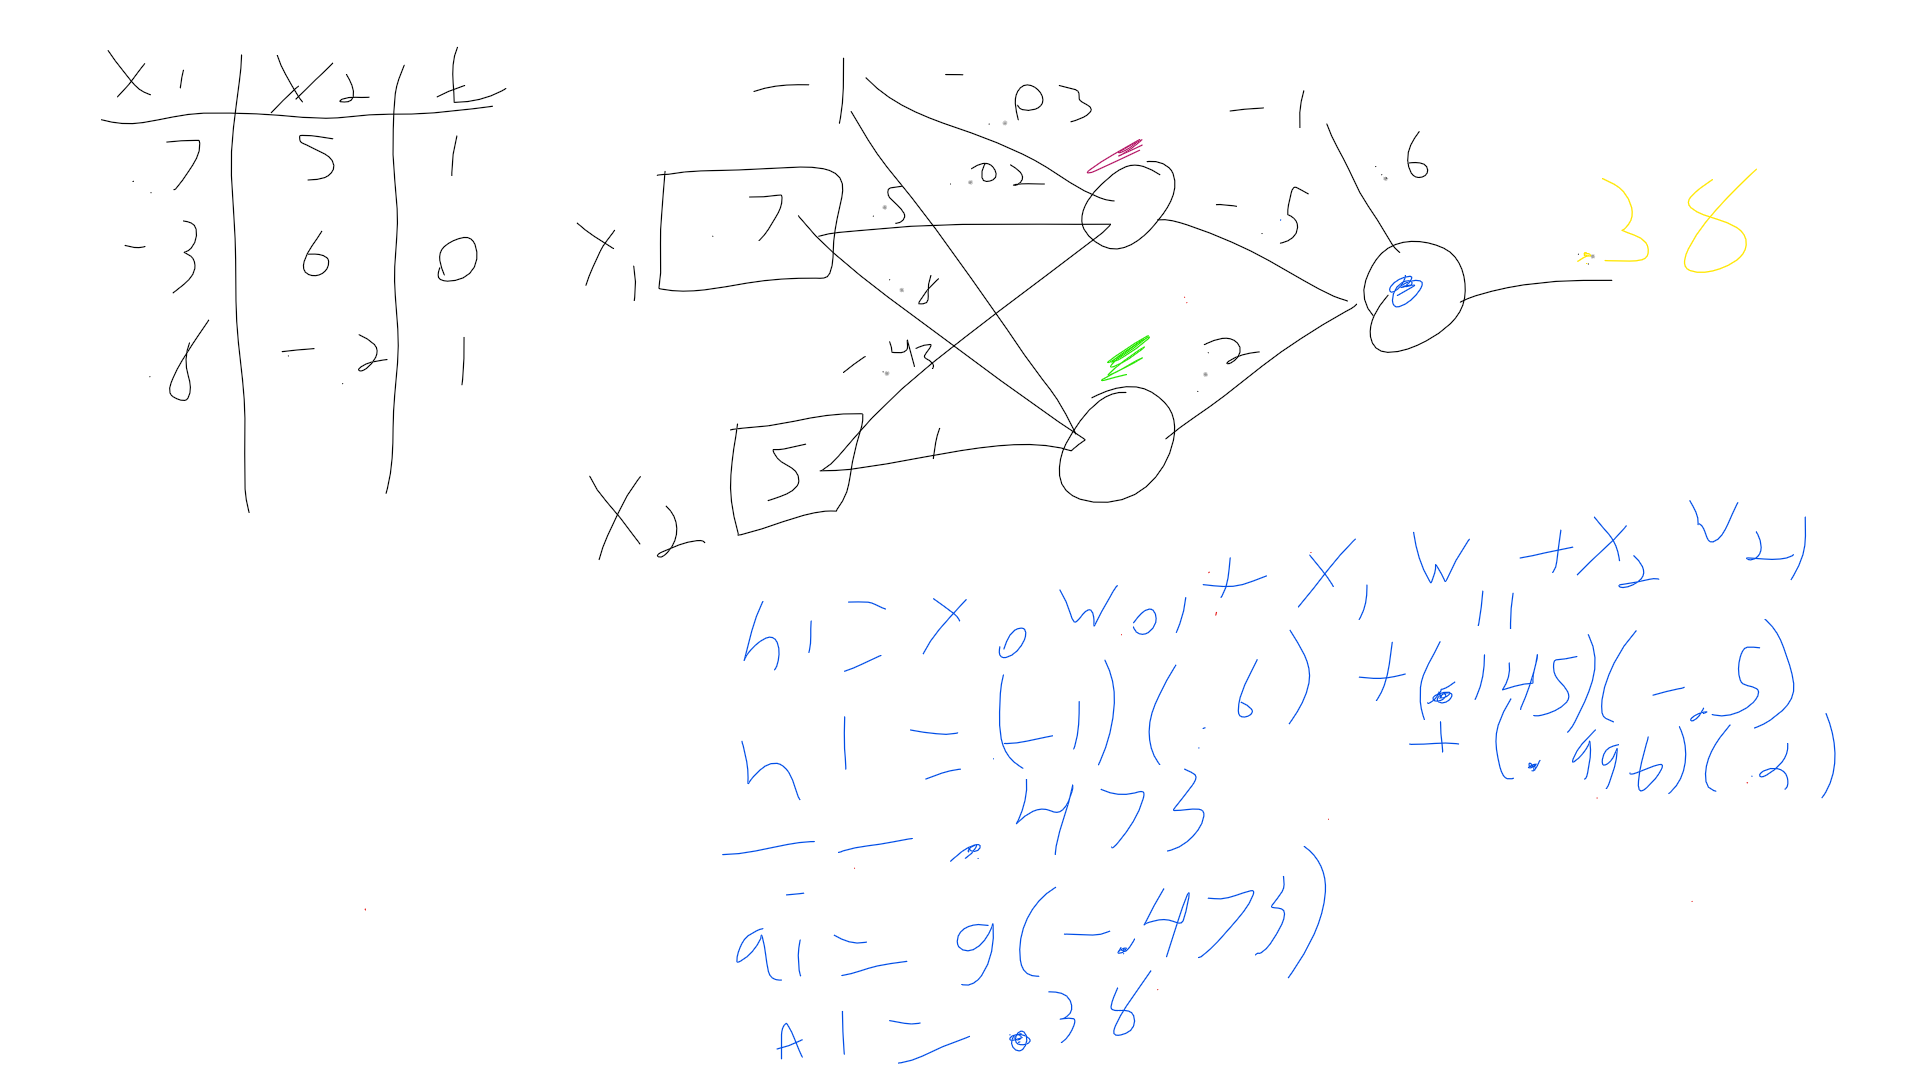 x1 x2 t
7 5 1
-3 6 0
8 -2 1
-1
-.03
.02
x1
7
.5
.8
-.43
x2
5
1
-1
.6
-.5
.2
.38
h1 = x0 w01 + x1 w11 + x2 w21
h1 = (-1)(.6) + (.145)(-.5)
+ (.996)(.2)
- - .473
a1 = g(-.473)
A1 = .38